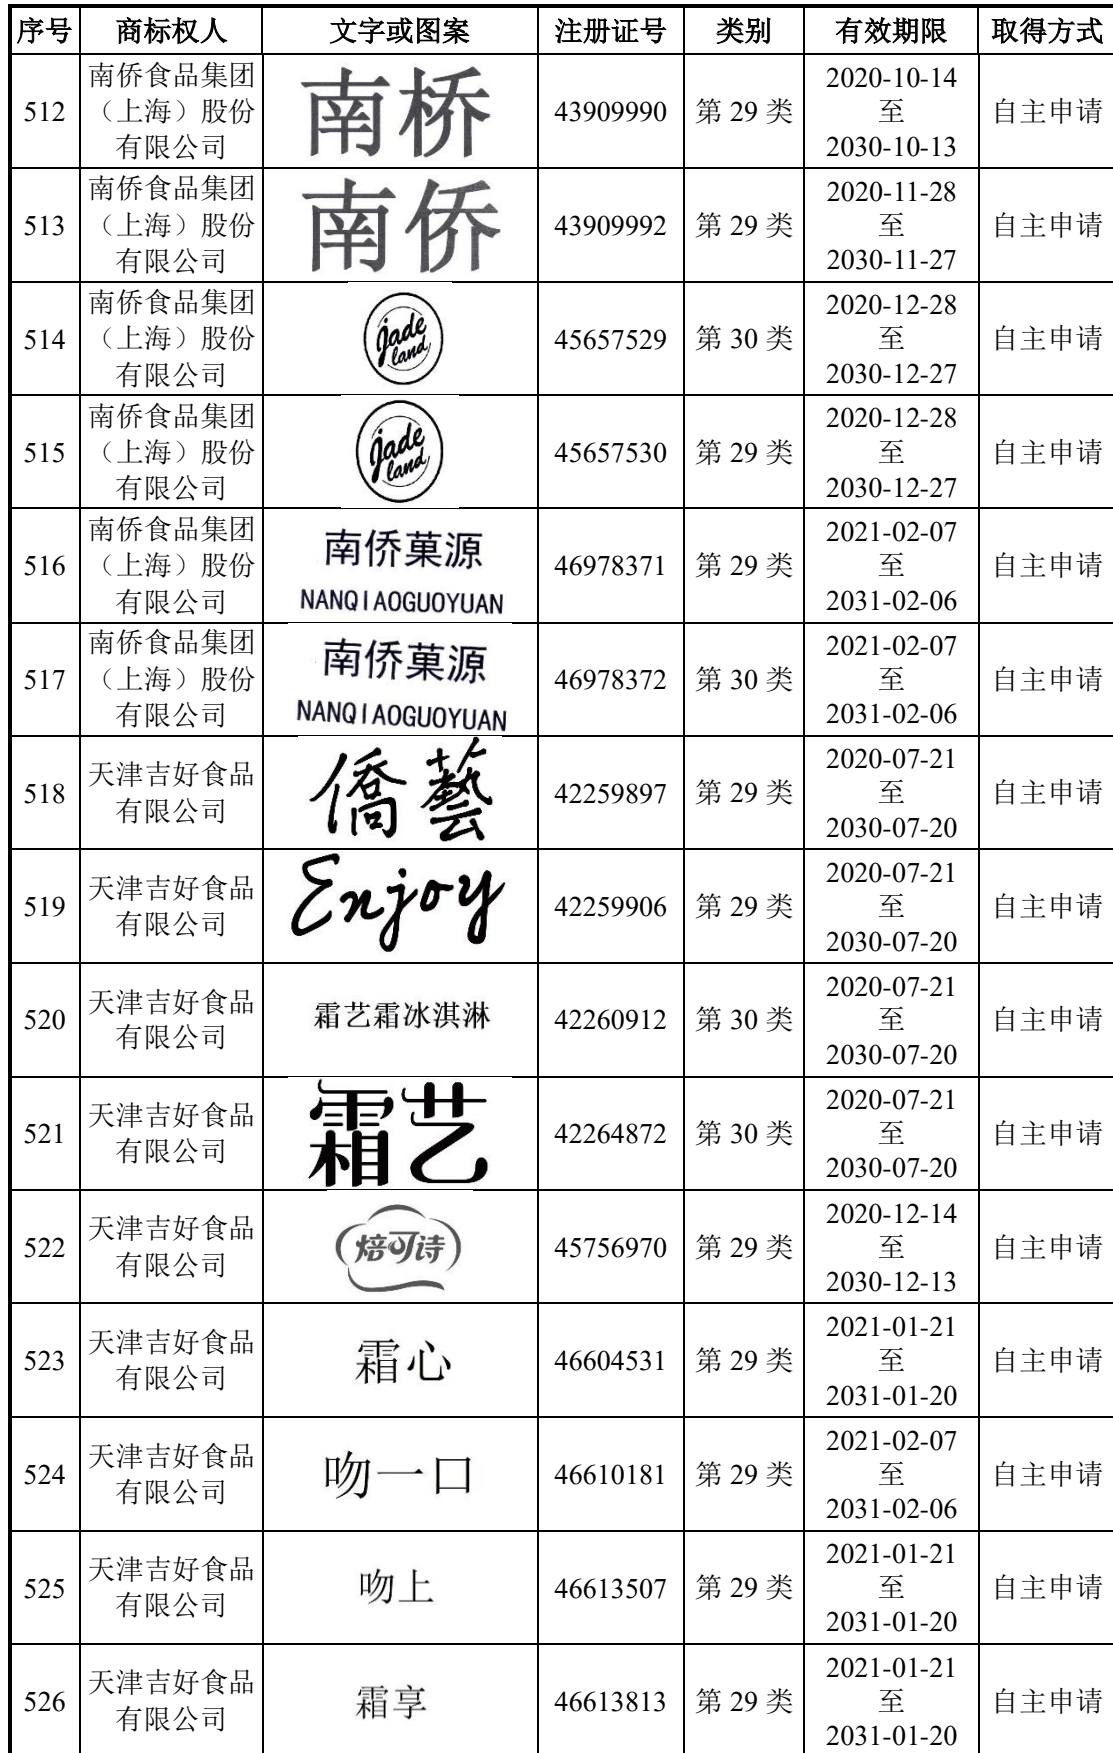 序号 商标权人 文字或图案 注册证号 类别 有效期限 取得方式
512 南侨食品集团（上海）股份有限公司 南桥 43909990 第 29 类 2020-10-14 至 2030-10-13 自主申请
513 南侨食品集团（上海）股份有限公司 南侨 43909992 第 29 类 2020-11-28 至 2030-11-27 自主申请
514 南侨食品集团（上海）股份有限公司 jade land 45657529 第 30 类 2020-12-28 至 2030-12-27 自主申请
515 南侨食品集团（上海）股份有限公司 jade land 45657530 第 29 类 2020-12-28 至 2030-12-27 自主申请
516 南侨食品集团（上海）股份有限公司 南侨菓源 NANQIAOGUOYUAN 46978371 第 29 类 2021-02-07 至 2031-02-06 自主申请
517 南侨食品集团（上海）股份有限公司 南侨菓源 NANQIAOGUOYUAN 46978372 第 30 类 2021-02-07 至 2031-02-06 自主申请
518 天津吉好食品有限公司 僑藝 42259897 第 29 类 2020-07-21 至 2030-07-20 自主申请
519 天津吉好食品有限公司 Enjoy 42259906 第 29 类 2020-07-21 至 2030-07-20 自主申请
520 天津吉好食品有限公司 霜艺霜冰淇淋 42260912 第 30 类 2020-07-21 至 2030-07-20 自主申请
521 天津吉好食品有限公司 霜艺 42264872 第 30 类 2020-07-21 至 2030-07-20 自主申请
522 天津吉好食品有限公司 焙可诗 45756970 第 29 类 2020-12-14 至 2030-12-13 自主申请
523 天津吉好食品有限公司 霜心 46604531 第 29 类 2021-01-21 至 2031-01-20 自主申请
524 天津吉好食品有限公司 吻一口 46610181 第 29 类 2021-02-07 至 2031-02-06 自主申请
525 天津吉好食品有限公司 吻上 46613507 第 29 类 2021-01-21 至 2031-01-20 自主申请
526 天津吉好食品有限公司 霜享 46613813 第 29 类 2021-01-21 至 2031-01-20 自主申请